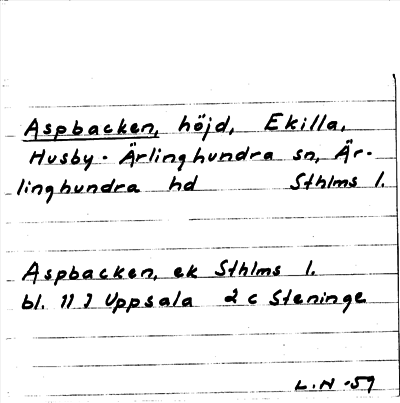 Aspbacken, höjd, Ekilla,
Husby-Ärlinghundra sn, Är-
linghundra hd Sthlms l.
Aspbacken, ek Sthlms l.
bl. 11 I Uppsala 2 c Steninge
L.N -59